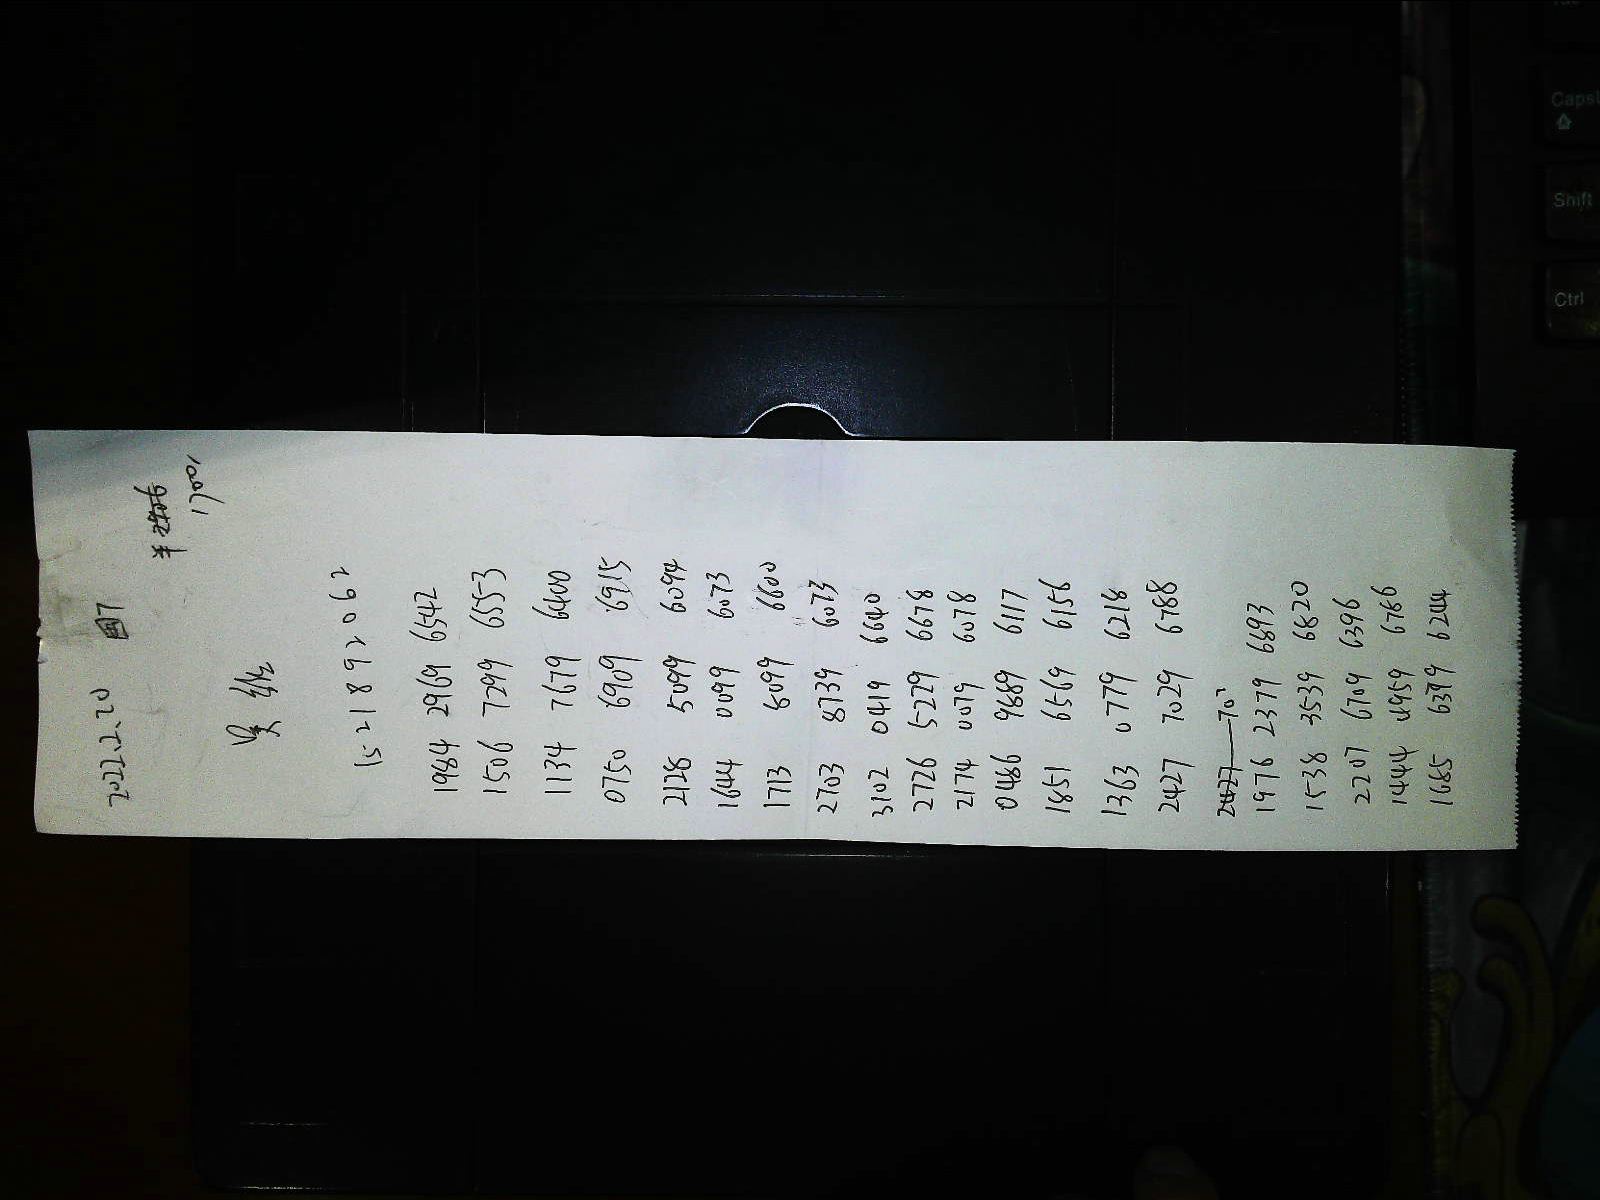 2022.2.20
17000
吴
15218922062
1984 2969 6542
1506 7299 6553
1134 7679 6400
0750 6909 6915
2128 5099 6094
1644 0099 6073
1713 8099 6600
2703 8739 6073
3102 0419 6640
2726 5229 6678
2174 0079 6078
0486 9889 6117
1851 6569 6156
1363 0779 6218
2427 7029 6788
2427 702
1976 2379 6893
1538 3539 6820
2207 6709 6396
1444 4959 6786
1685 6399 6244
Caps
Shift
Ctrl